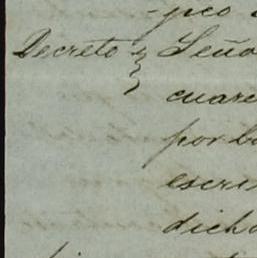 -pco
Decreto } Seño
cuare
por b
escri
dich